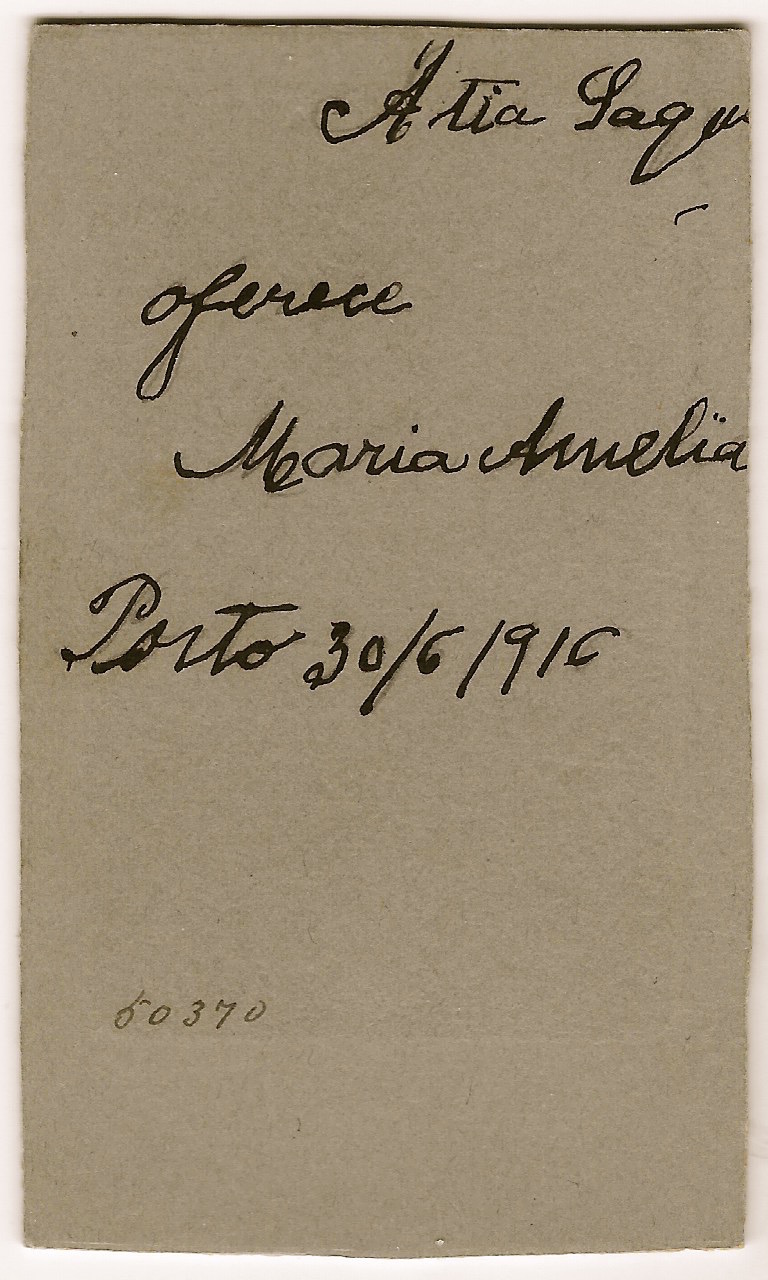 Á tia
oferece
Maria Amelia
Porto 30/6/916
50370